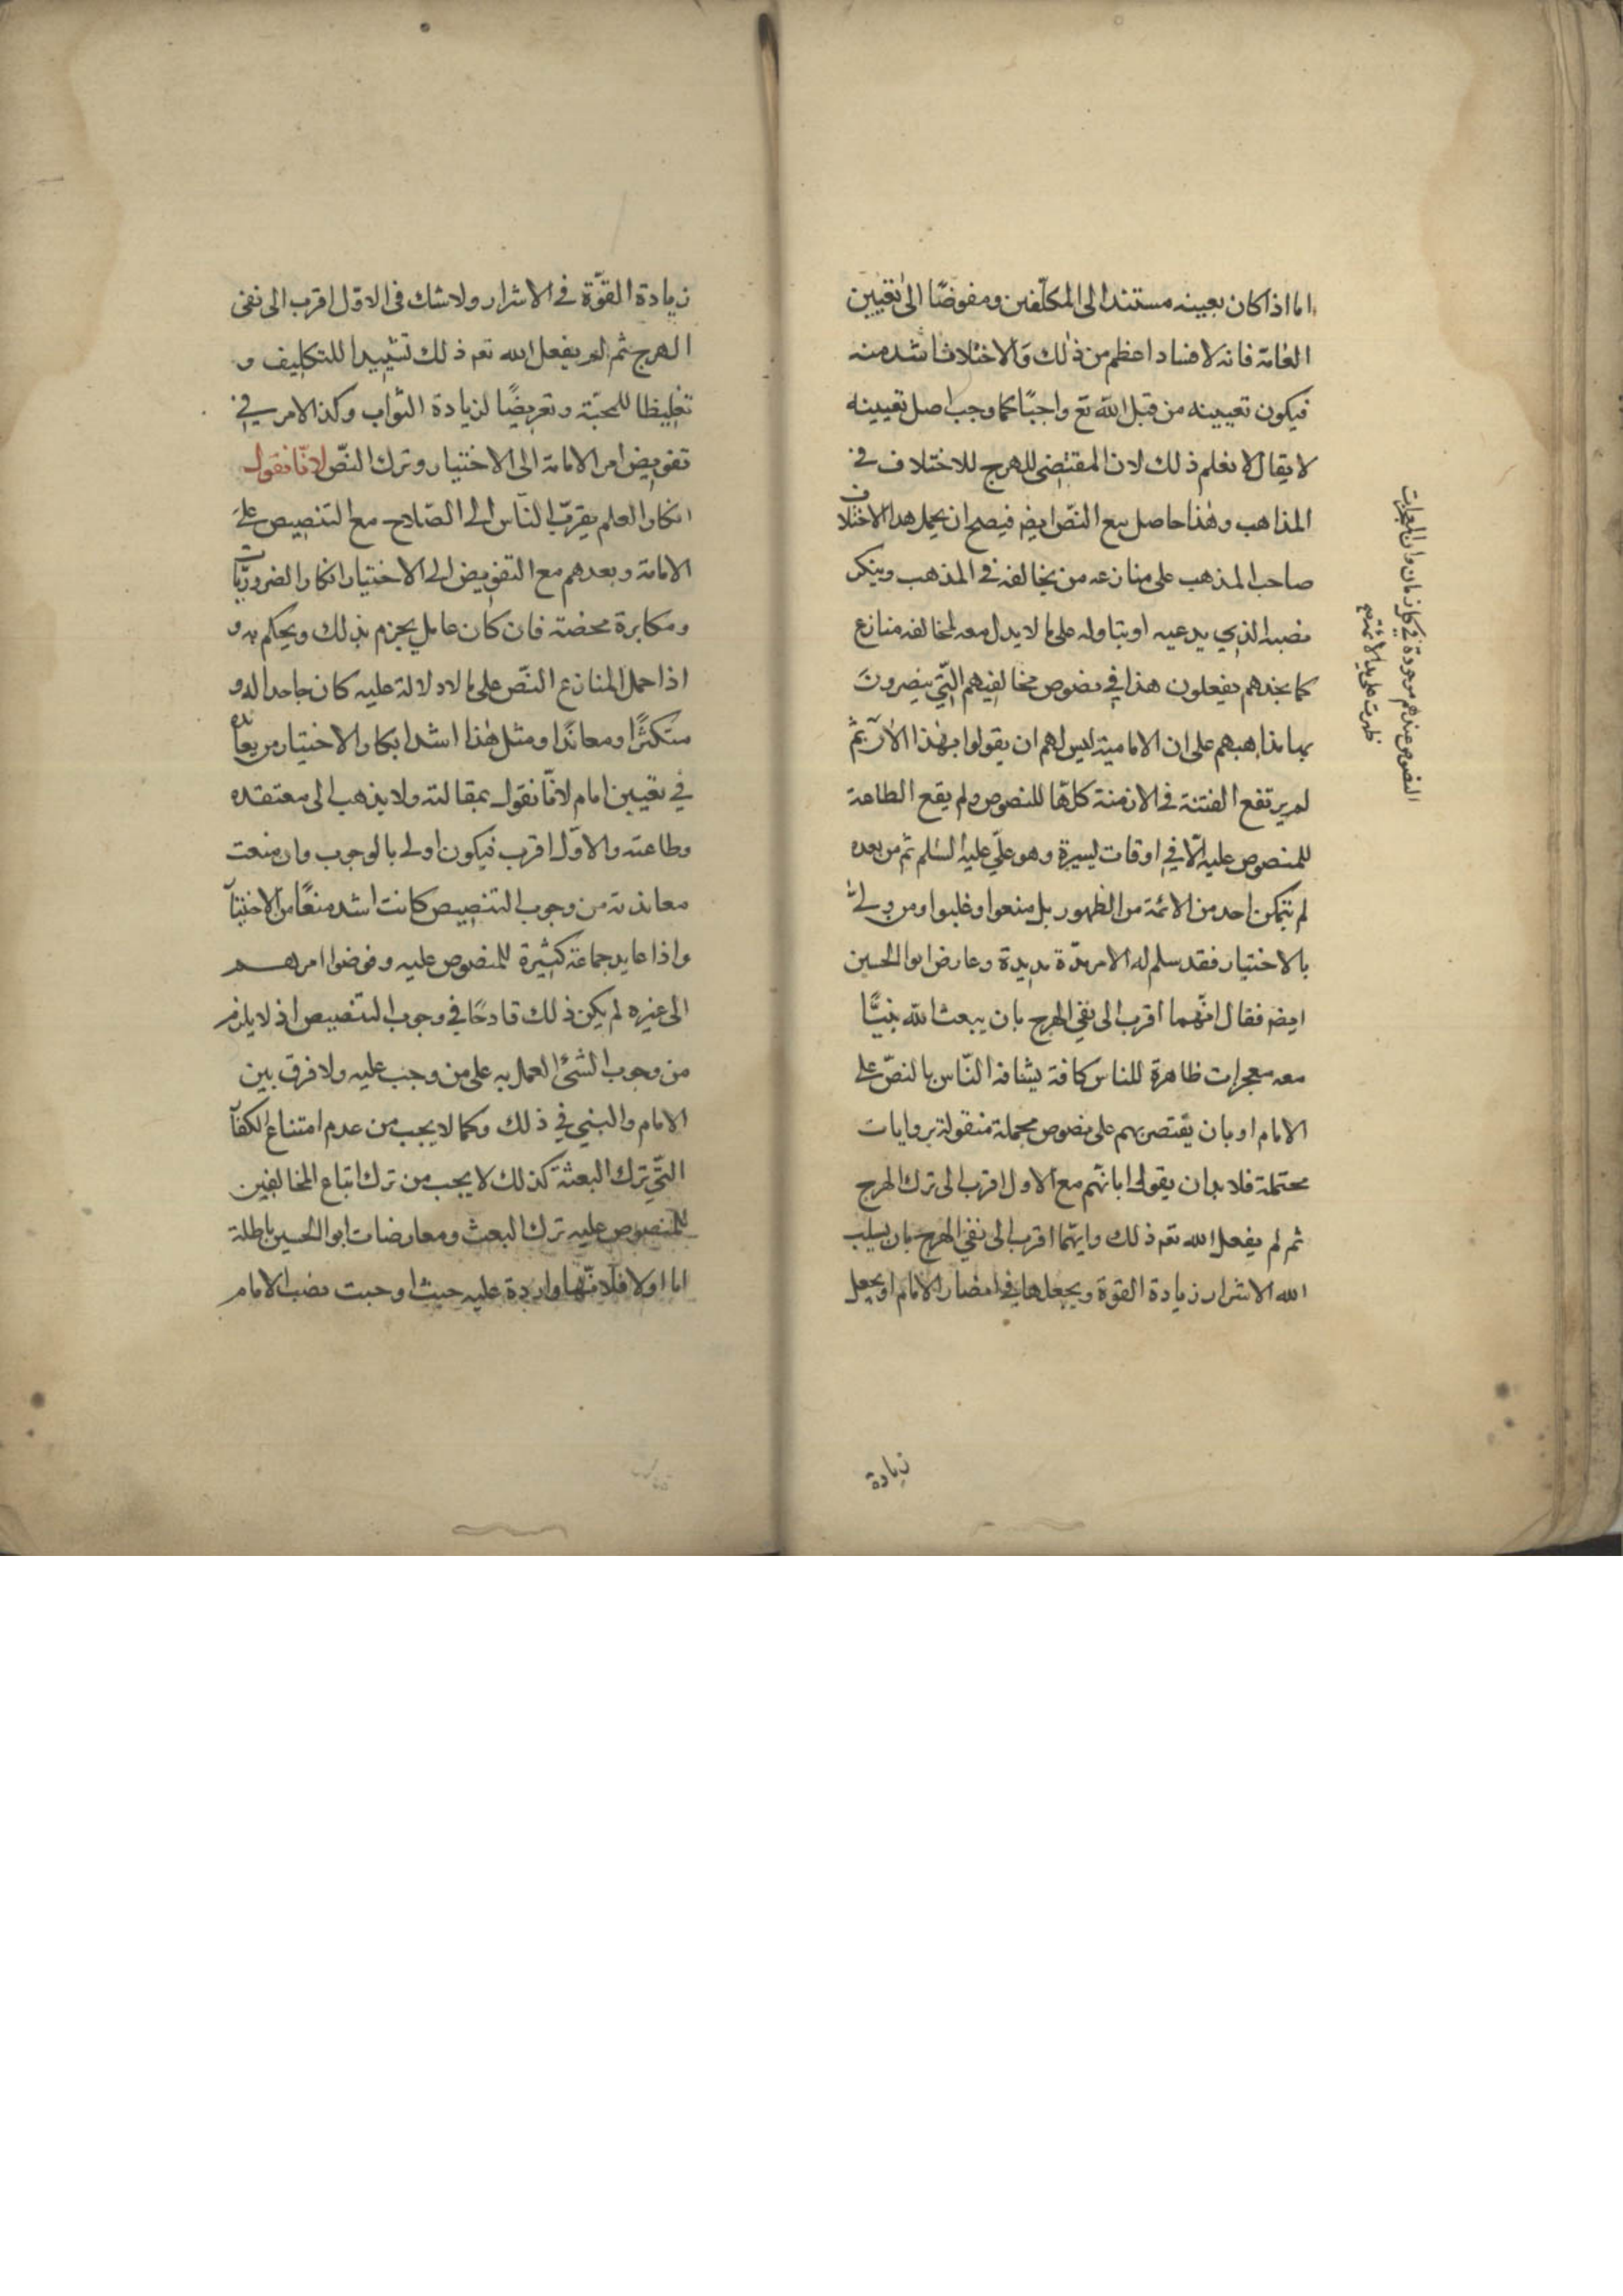 اما اذا كان تعيينه مستندا الى المكلّفين ومفوضًا الى تعيين
العامّة فانه لا فساد اعظم من ذلك والاختلاف اشد منه
فيكون تعيينه من قبل الله تع واجبًا كما وجب اصل تعيينه
لا يقال لا نعلم ذلك لان المقتضى للهرج للاختلاف فى
المذاهب وهذا حاصل مع النصّ ايض فيصح ان يحمل هذا الاختلاف
صاحب المذهب على منازعه من يخالفه فى المذهب وينكر
نصه الذي يدعيه او يتاوله على ما لا يدل معه لمخالفه منازع
كما نجدهم يفعلون هذا في نصوص مخالفيهم التّي ينصرون
بها مذاهبهم على ان الامامية ليس لهم ان يقولوا بهذا الان ثم
لم يرتفع الفتنة فى الازمنة كلّها للنصوص ولم يقع الطاعة
للمنصوص عليه الّا في اوقات يسيرة وهو علّي عليه السّلم ثم من بعده
لم يتمكن احد من الائمة من الظهور بل منعوا وغلبوا ومن ولى
بالاختيار فقد سلم له الامر مدّة مديدة وعارض ابو الحسين
ايض فقال انّهما اقرب الى نفي الهرج بان يبعث الله نبيًّا
معه معجزات ظاهرة للناس كافة يشافه النّاس بالنصّ على
الامام او بان يقتصر بهم على نصوص مجملة منقولة بروايات
محتملة فلا بد ان يقولوا بانّهم مع الاول اقرب الى ترك الهرج
ثم لم يفعل الله تع ذلك وايّهما اقرب الى نفي الهرج بان يسلب
الله الاشرار زيادة القوة ويجعلها في انصار الامام او يجعل
زيادة
النصوص عندهم موجودة في كل زمان وان المعجزات
ظهرت على يد الائمة
زيادة القوّة في الاشرار ولا شك فى الاوّل اقرب الى نفى
الهرج ثم لم يفعل الله تع ذلك تشييدا للتكليف و
تغليظا للمحنة وتعريضًا لزيادة الثواب وكذا الامر في
تفويض امر الامامة الى الاختيار وترك النصّ لانّا نقول
انكار العلم بقرب النّاس الى الصّلاح مع التنصيص على
الامامة وبعدهم مع التفويض الى الاختيار انكار الضروريّات
ومكابرة محضة فان كان عاقل يجزم بذلك ويحكم به و
اذا حمل المنازع النصّ على ما لا دلالة عليه كان جاحدا له و
متكثرًا ومعاندًا ومثل هذا اشد انكار الاختيار من يعانده
في تعيين امام لانّا نقول بمقالته ولا يذهب الى معتقده
وطاعته والاوّل اقرب فيكون اولى بالوجوب وان منعت
معاندته من وجوب التنصيص كانت اشد منعًا من الاختيار
واذا عاند جماعة كثيرة للمنصوص عليه وفوضوا امرهم
الى غيره لم يكن ذلك قادحًا في وجوب التنصيص اذ لا يلزم
من وجوب الشئ العمل به على من وجب عليه ولا فرق بين
الامام والنبي في ذلك وكما لا يجب من عدم امتناع الكفار
التّي ترك البعثة كذلك لا يجب من ترك اتباع المخالفين
للمنصوص عليه ترك البعث ومعارضات ابو الحسين باطلة
اما اولا فلانّها واردة عليه حيث اوجبت نصب الامام